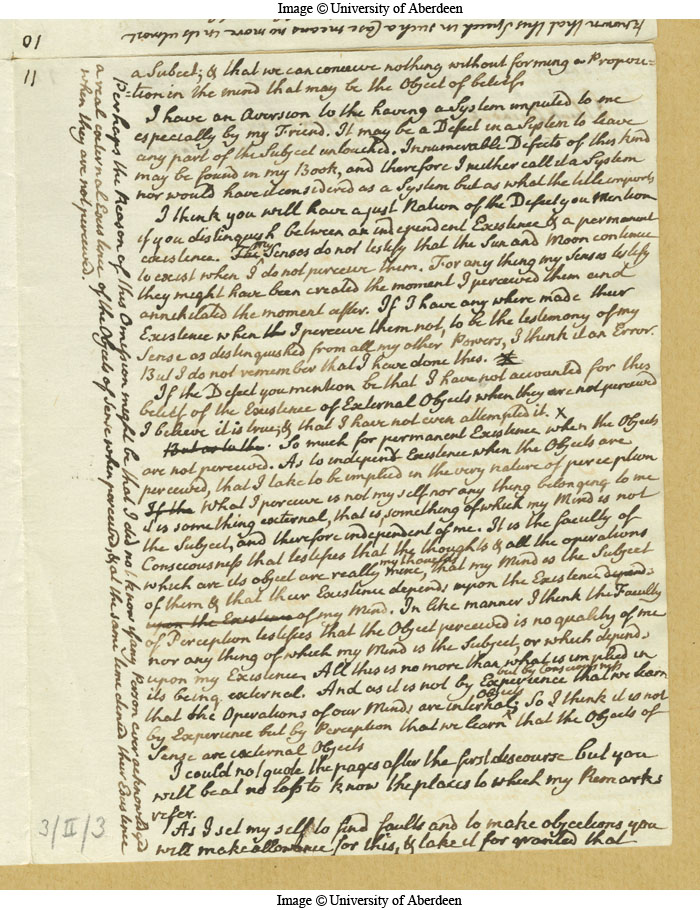 Image © University of Aberdeen
known that this Speech in such a Case means no more in its utmost
10
11
a Subect; & that we can conceive nothing without forming a Proposi=
=tion in the mind that may be the Object of belief
I have an Aversion to the having a System imputed to me
especially by my Friend. It may be a Defect in a System to leave
any part of the Subject untouched. Innumerable Defects of this kind
may be found in my Book, and therefore I neither call it a System
nor would have it considered as a System but as what the title imports
I think you will have a just Notion of the Defect you Mention
if you distinguish between an independent Existence & a permanent
existence. The my Senses do not testify that the Sun and Moon continue
to exist when I do not perceive them. For any thing my Senses testify
they might have been created the moment I perceived them and
annihilated the moment after. If I have any where made their
Existence when th I perceive them not, to be the testemony of my
Sense as distinguished from all my other Powers, I think it an Error.
But I do not remember that I have done this.
If the Defect you mention be that I have not accounted for this
belief of the Existence of External Objects when they are not perceived
I believe it is true; & that I have not even attempted it. X
But as to the. So much for permanent Existence when the Objects
are not perceived. As to independt Existence when the Objects are
perceived, that I take to be implied in the very nature of perception
If the What I perceive is not my self nor any thing belonging to me
it is some thing external, that is, something of which my Mind is not
the Subject, and therefore independent of me. It is the faculty of
Consciousness that testifies that the thoughts & all the operations
which are its object are really mine, my thoughts that my Mind is the Subject
of them & that their Existence depends upon the Existence
upon the Existence of my Mind. In like manner I think the Faculty
of Perception testifies that the Object perceived is no quality of me
nor any thing of which my Mind is the Subject, or which depends
upon my Existence. All this is no more than what is implied in
its being external. And as it is not by Experience but by Consciousness that we learn
that the Operations of our Minds are internal Objects; So I think it is not
by Experience but by Perception that we learn that the Objects of
Sense are external Objects
I could not quote the pages after the first discourse but you
will be at no loss to know the places to which my Remarks
refer.
As I set my self to find faults and to make objections you
will make allowance for this, & take it for granted that
Perhaps the Reason of this Omission might be that I did not know if any Person ever acknowledged
a real external Existence of the Objects of Sense when perceived, & at the same time denied their Existence
when they are not perceived.
3/II/3
Image © University of Aberdeen